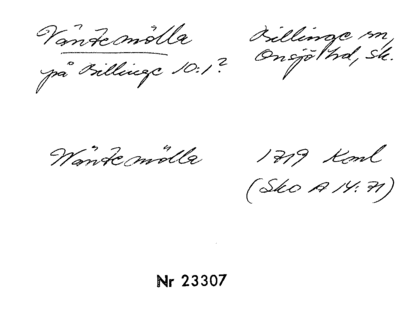 Väntemölla Billinge sn,
på Billinge 10:1? Onsjö hd, Sk.
Wäntemölla 1719 Koml
(Sko A 14:71)
Nr 23307